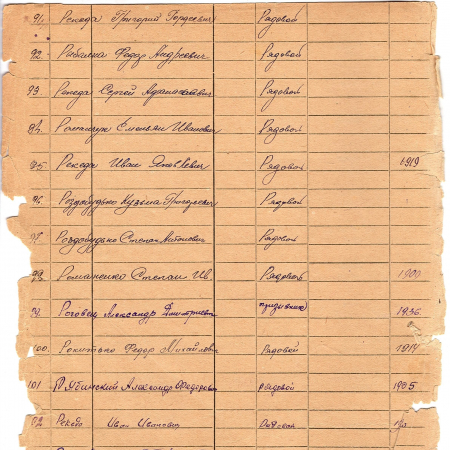 91. Рекеда Григорий Гордеевич Рядовой
92. Рибалка Федор Андреевич Рядовой
93 Рекеда Сергей Афанасаевич Рядовой
94. Романчук Емельян Иванович Рядовой
95. Рекеда Иван Яковлевич Рядовой 1919
96. Роздобудько Кузьма Григорьевич Рядовой
97. Роздобудько Степан Антонович Рядовой
98. Романенко Степан Ив. Рядовой 1900
99. Роговец Александр Дмитриевич призывник 1936
100. Рокитько Федор Михайлович Рядовой 1914
101 Рябинский Александр Федорович рядовой 1905
02. Рекедо Иван Иванович Рядовой